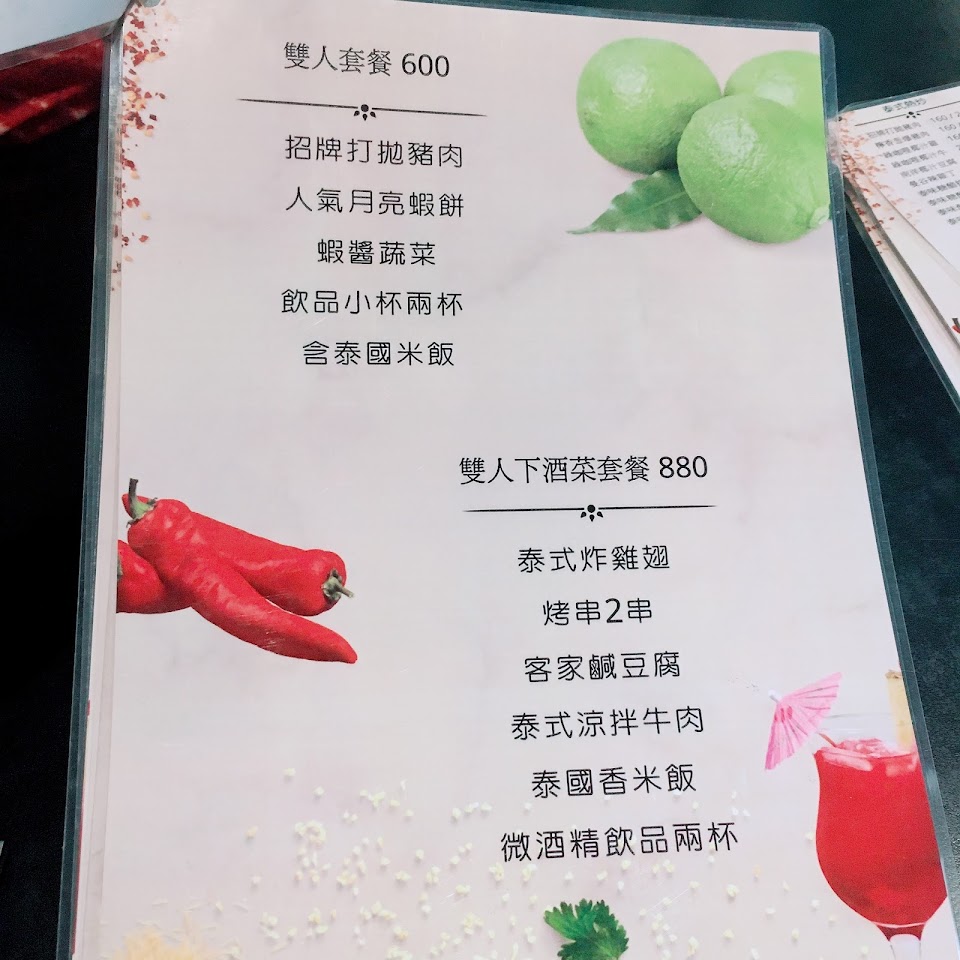 雙人套餐 600
招牌打拋豬肉
人氣月亮蝦餅
蝦醬蔬菜
飲品小杯兩杯
含泰國米飯
雙人下酒菜套餐 880
泰式炸雞翅
烤串2串
客家鹹豆腐
泰式涼拌牛肉
泰國香米飯
微酒精飲品兩杯
泰式熱炒